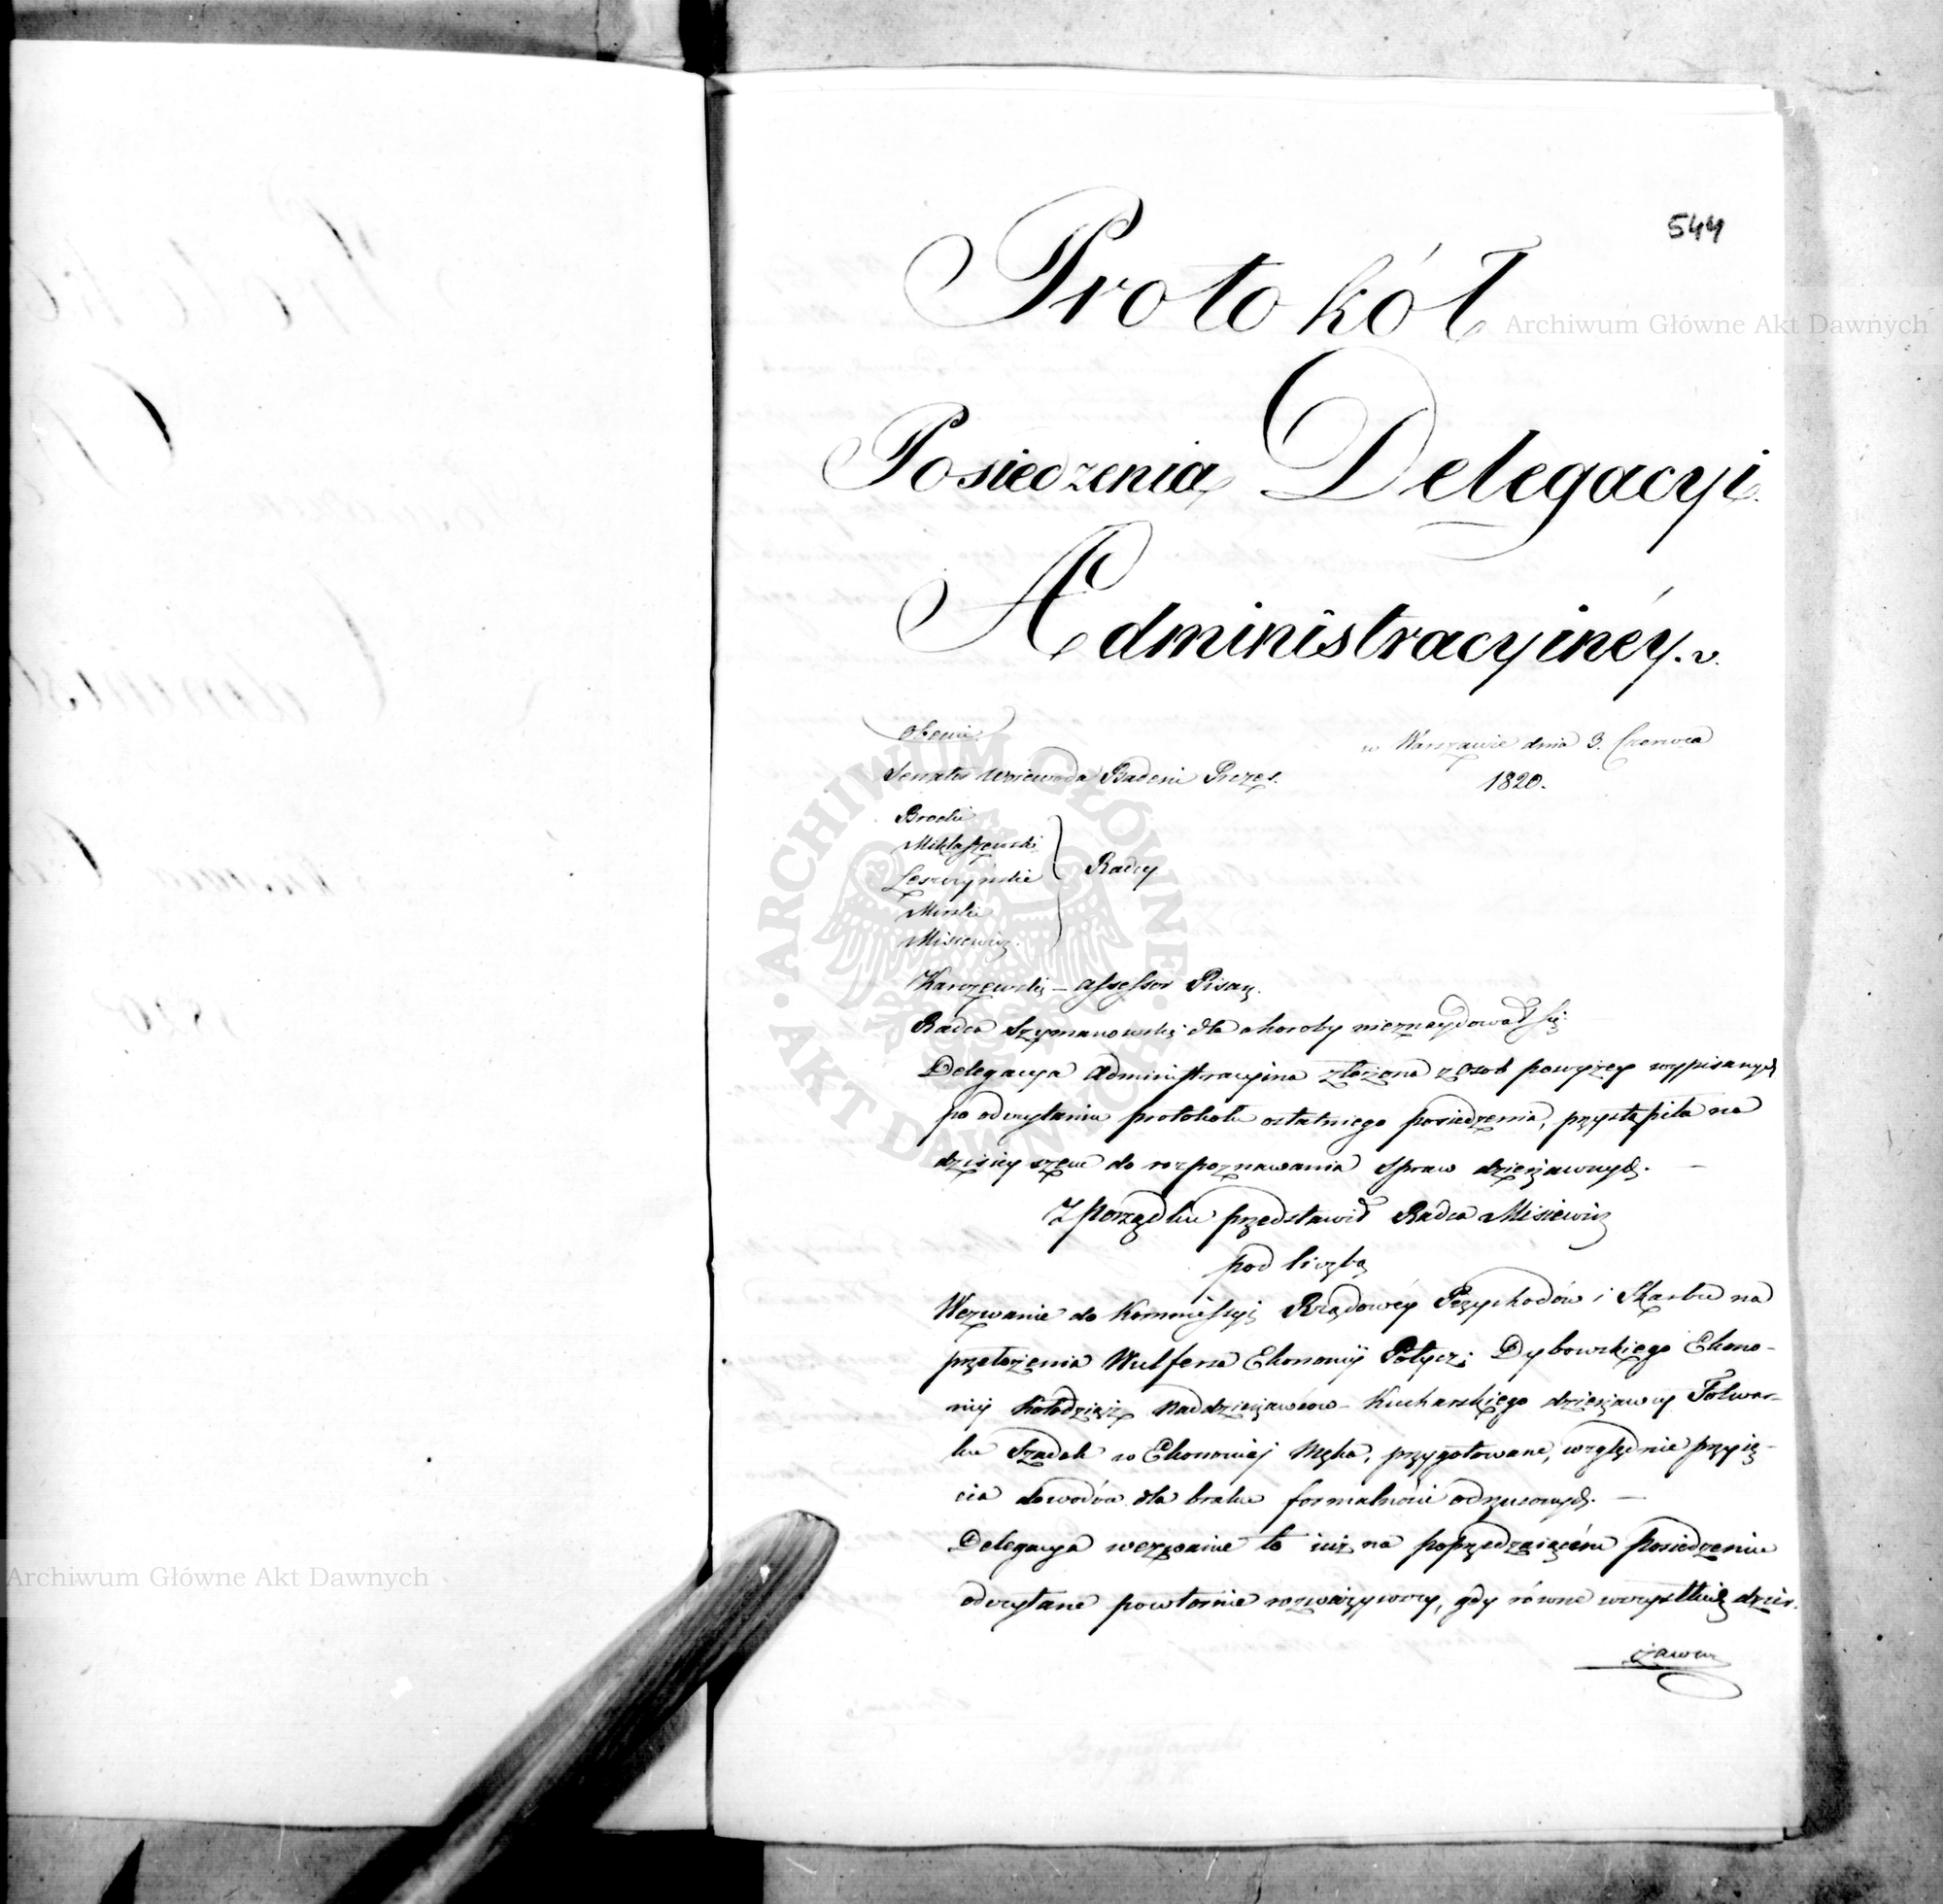 544
Protokół
Posiedzenia Delegacyi
Administracyinéy.
Obecni
w Warszawie dnia 3. Czerwca
1820.
Senator Woiewoda Badeni Prezes.
Brocki
Miklaszewski
Leszczyński
Mirski
Misiewicz
Radcy
Karczewski – Assessor Pisarz.
Radca Szymanowski dla choroby nieznaydował się.
Delegacya Administracyina złożona z osob powyżey wypisanych
po odczytaniu protokołu ostatniego posiedzenia, przystąpiła na
dzisieyszem do rozpoznawania spraw dzierżawnych. –
Z porządku przedstawił Radca Misiewicz
pod liczbą
Wezwanie do Kommissyi Rządowéy Przychodów i Skarbu na
przełożenia Wulfersa Ekonomij Dybowskiego Ekono-
mij Kołodziąż Naddzierżawców – Kucharskiego dzierżawcy Folwar-
ku Szadek w Ekonomij Męka, przygotowane, względnie przyię-
cia dowodów dla braku formalności odrzuconych. –
Delegacya wezwanie to iuż na poprzedzaiącém posiedzeniu
odczytane powtórnie rozważywszy, gdy równe wszystkich dzier-
żawców
Archiwum Główne Akt Dawnych
Archiwum Główne Akt Dawnych
ARCHIWUM GŁÓWNE • AKT DAWNYCH •